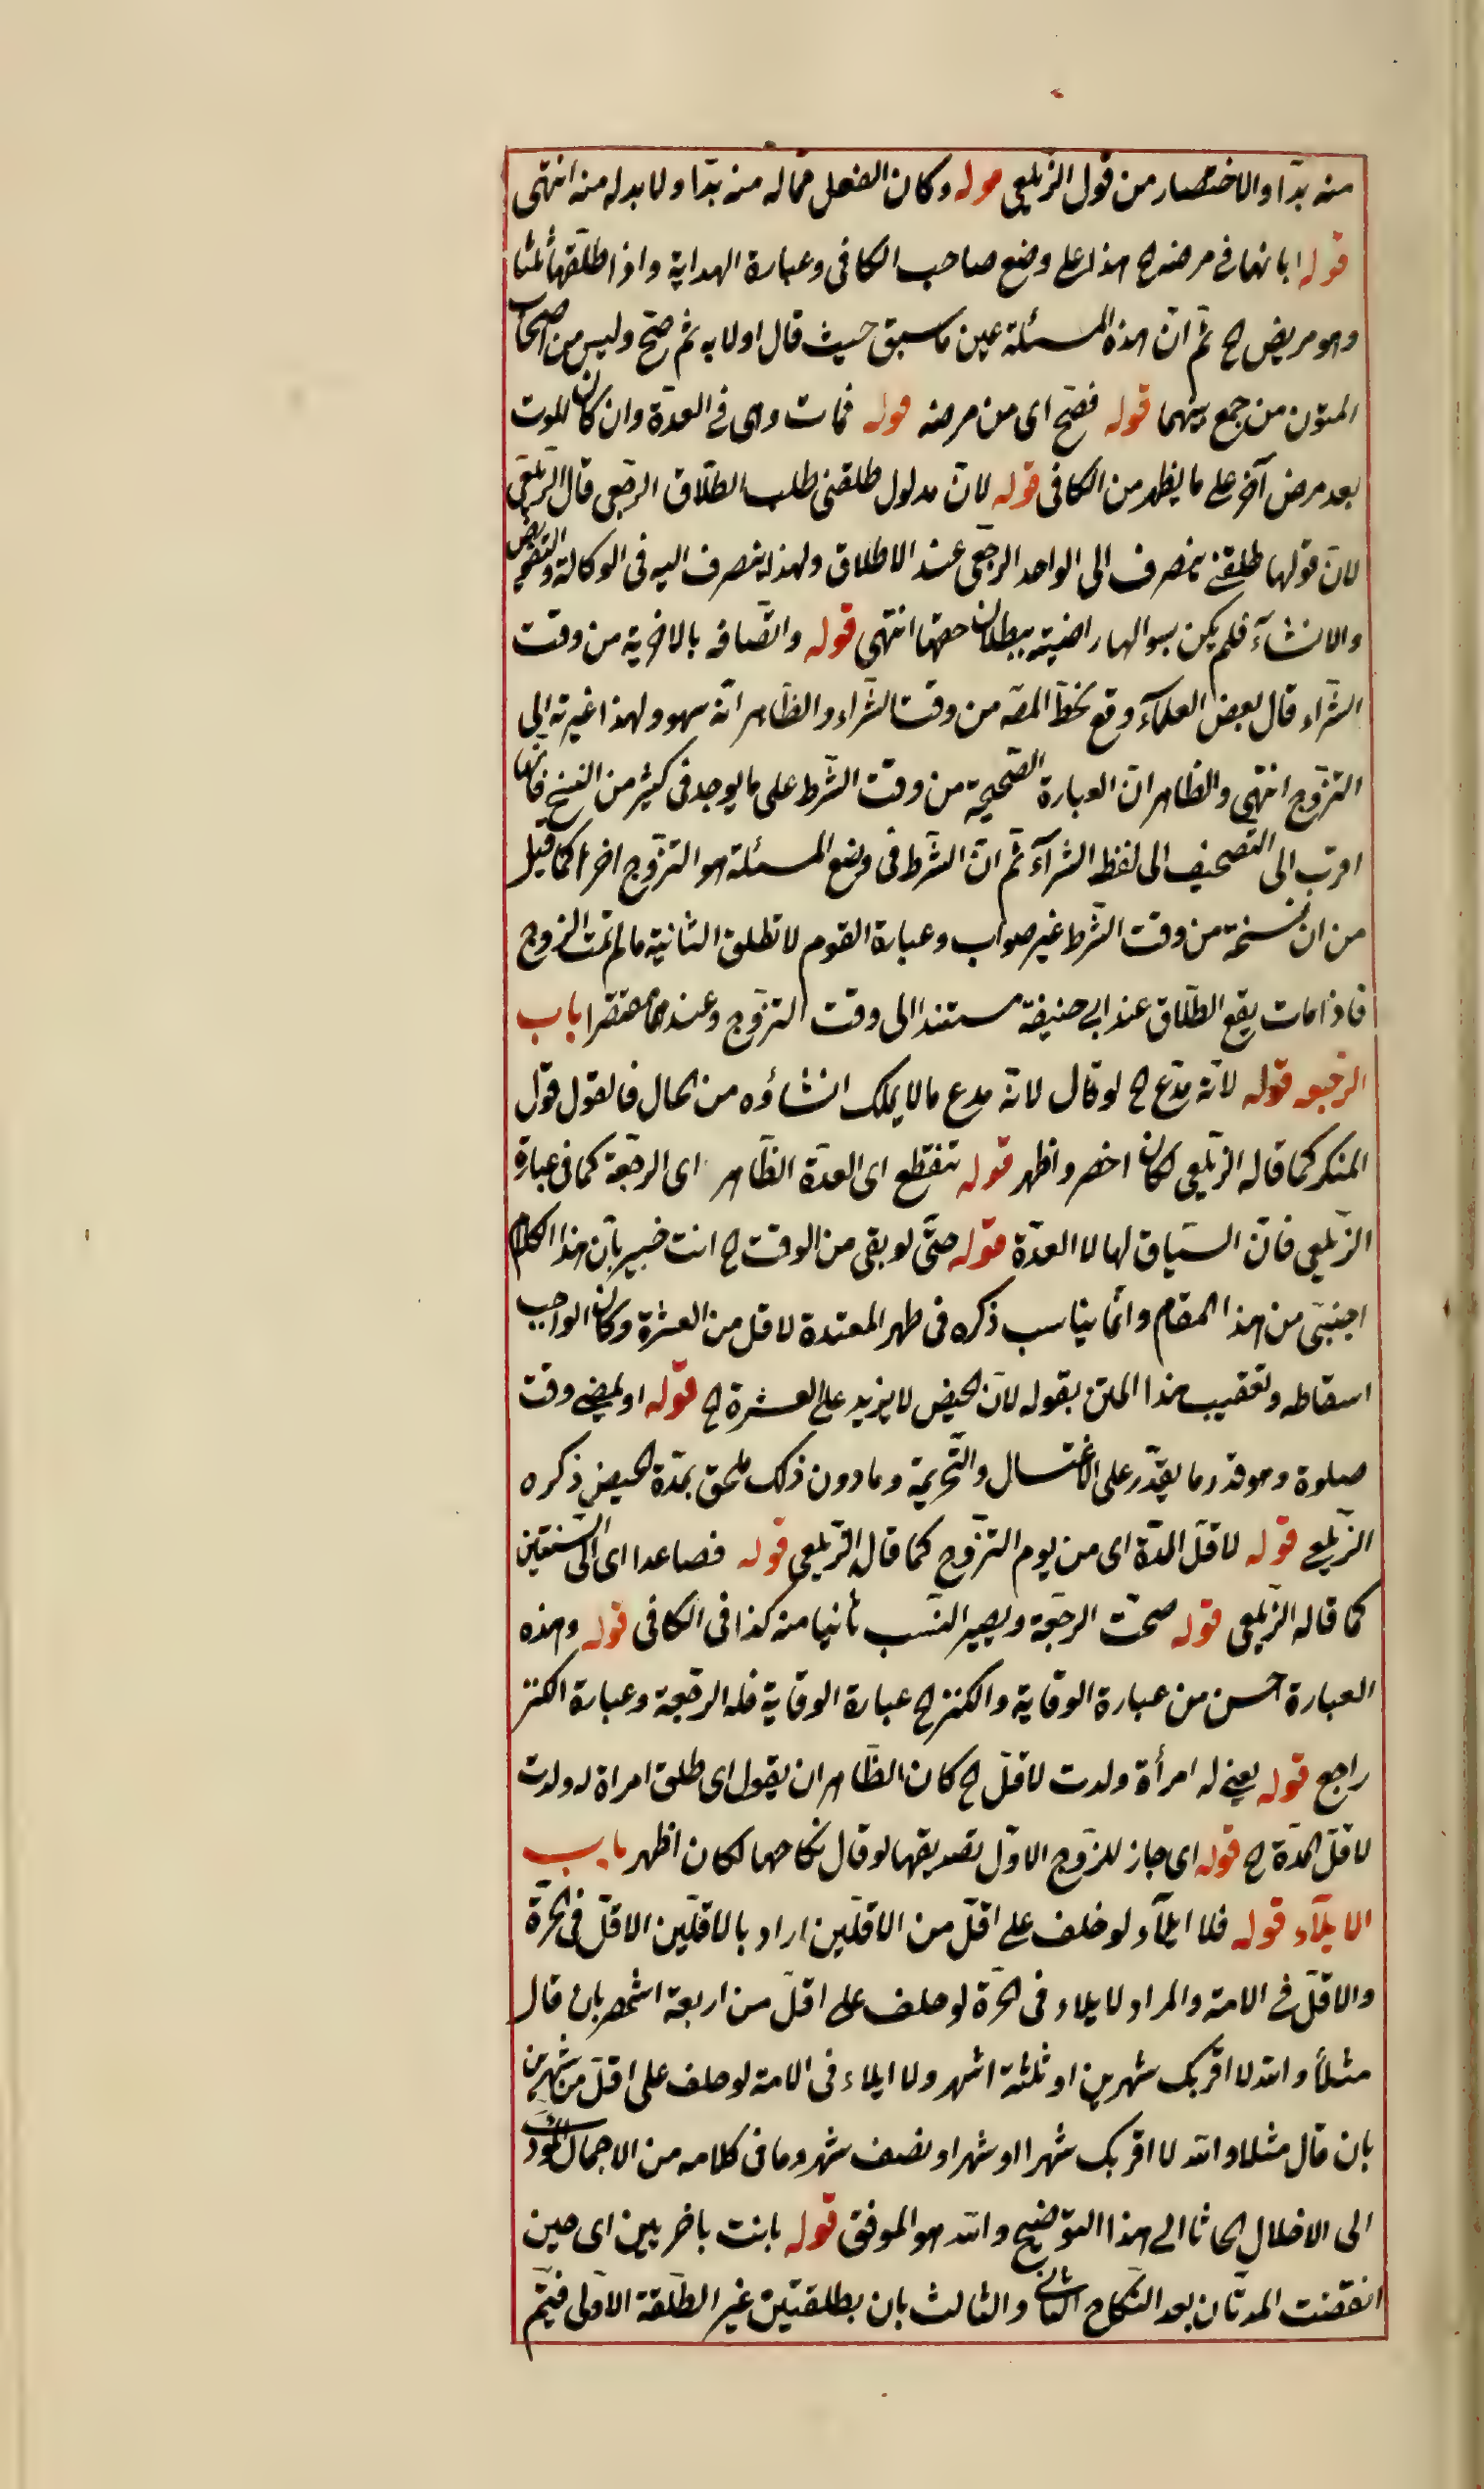 منه بدّا والاختصار من قول الزيلعى قوله وكان الفعل مماله منه بدّا ولا بدله منه انتهى
قوله ابانها فى مرضه الخ هذا على وضع صاحب الكافى وعبارة الهداية واذا طلّقها ثلثا
وهو مريض الخ ثم انّ هذه المسئلة عين ما سبق حيث قال اولا به ثم صحّ وليس من اصحاب
المتون من جمع بينهما قوله فصحّ اى من مرضه قوله فمات وهى فى العدّة وان كان الموت
بعد مرض آخر على ما يظهر من الكافى قوله لانّ مدلول طلقنى طلب الطّلاق الرّجعى قال الزّيلعى
لانّ قولها طلقنى ينصرف الى الواحد الرجعى عند الاطلاق ولهذا ينصرف اليه فى الوكالة والتفويض
والانشآء فلم يكن بسوالها راضية ببطلان حقها انتهى قوله واتّصافه بالاخرية من وقت
الشّراء قال بعض العلمآء وقع بخطّ المصّ من وقت الشّراء والظّاهر انّه سهو ولهذا غيرته الى
التزّوج انتهى والظاهر انّ العبارة الصّحيحة من وقت الشّرط على ما يوجد فى كثير من النسخ فانها
اقرب الى التّصحيف الى لفظ الشرآء ثم انّ الشّرط فى وضع المسئلة هو التزّوج اخرا كما قيل
من ان نسخة من وقت الشّرط غير صواب وعبارة القوم لا تطلق الثانية ما لم تمت الزوج
فاذا مات يقع الطّلاق عند ابى حنيفة مستندا الى وقت التزّوج وعندهما مقتصرا باب
الرجعه قوله لانّه مدّع الخ لو قال لانّه مدع ما لا يملك انشاؤه من الحال فالقول قول
المنكر كما قاله الزيلعى لكان اخصر واظهر قوله تنقطع اى العدّة الظّاهر اى الرجعة كما فى عبارة
الزّيلعى فانّ السّياق لها لا العدّة قوله حتّى لو بقى من الوقت الخ انت خبير بأن هذا الكلام
اجنبىّ من هذا المقام وانّما يناسب ذكره فى طهر المعتدة لاقل من العشرة وكان الواجب
اسقاطه وتعقيب هذا المتن بقوله لانّ الحيض لا يزيد على العشرة الخ قوله او يمضى وقت
صلوة وهو قدر ما يقدّر على الاغتسال والتّحريمة وما دون ذلك ملحق بمدّة الحيض ذكره
الزّيلعى قوله لاقلّ المدّة اى من يوم التزّوج كما قال الزّيلعى قوله فصاعدا اى الى السّنتين
كما قاله الزيلعى قوله صحّت الرجعة ويصير النّسب ثانيا منه كذا فى الكافى قوله وهذه
العبارة احسن من عبارة الوقاية والكنز الخ عبارة الوقاية فله الرجعة وعبارة الكنز
راجع قوله يعنى له امرأة ولدت لاقلّ الخ كان الظّاهر ان يقول اى طلق امراة له ولدت
لاقلّ المدّة الخ قوله اى جاز للزّوج الاوّل تصديقها لو قال نكاحها لكان اظهر باب
الايلآء قوله فلا ايلآء لو حلف على اقلّ من الاقلّين اراد بالاقلّين الاقلّ فى الحرّة
والاقلّ فى الامة والمراد لا ايلاء فى الحرّة لو حلف على اقلّ من اربعة اشهر بان قال
مثلاً والله لا اقربك شهرين او ثلثة اشهر ولا ايلاء فى الامة لو حلف على اقلّ من شهرين
بان قال مثلا والله لا اقربك شهرا او شهرا ونصف شهر وما فى كلامه من الاجمال المؤدّى
الى الاخلال الجاثا الى هذا التوّضيح والله هو الموفق قوله بانت باخريين اى حين
انقضت المدتان بعد النّكاح الثانى والثالث بان بطلقتين غير الطّلقة الاولى فيتم